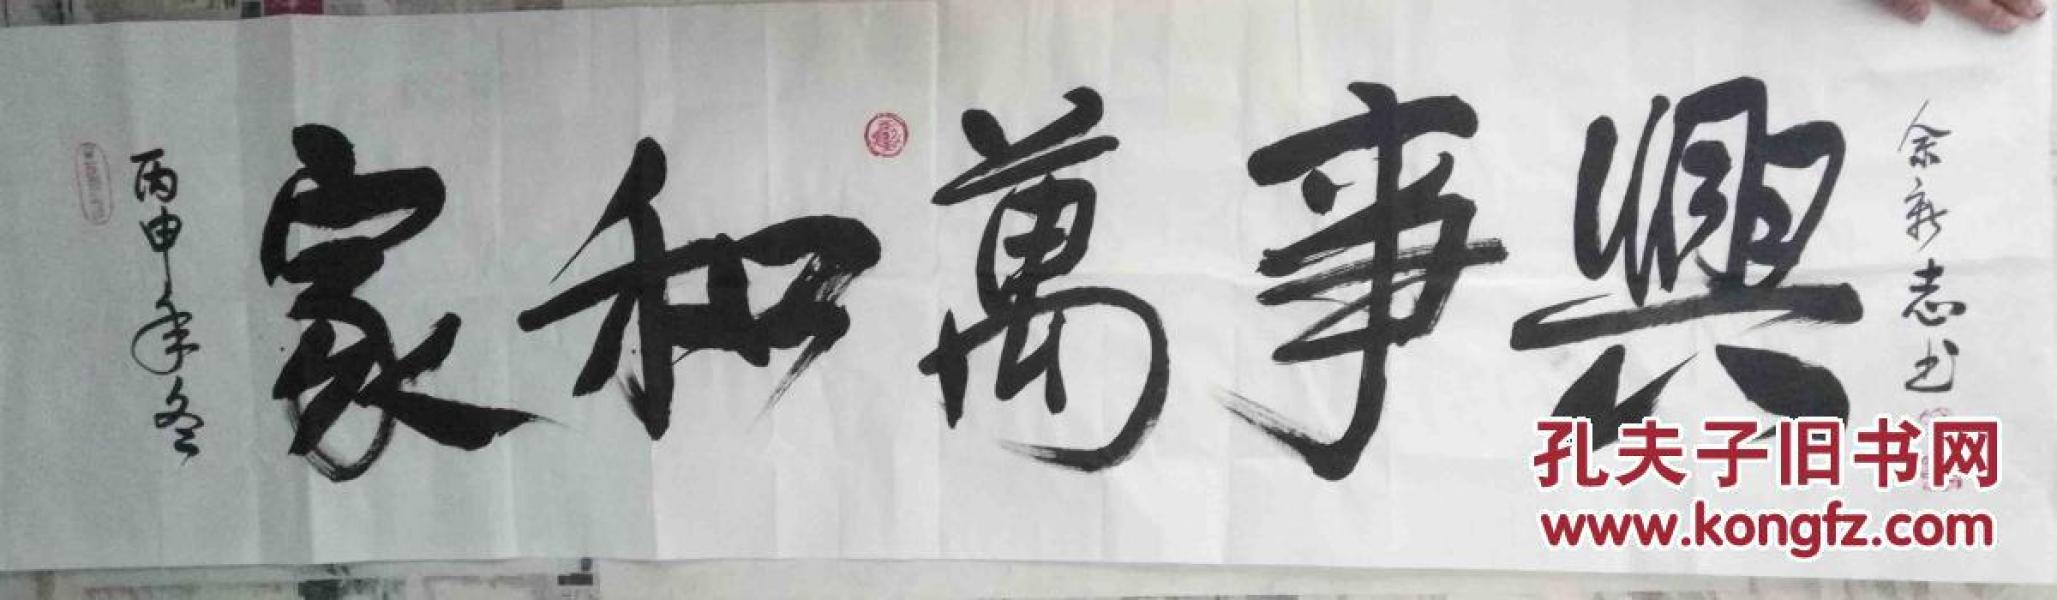 丙申年冬
家和萬事興
余新志书
孔夫子旧书网
www.kongfz.com